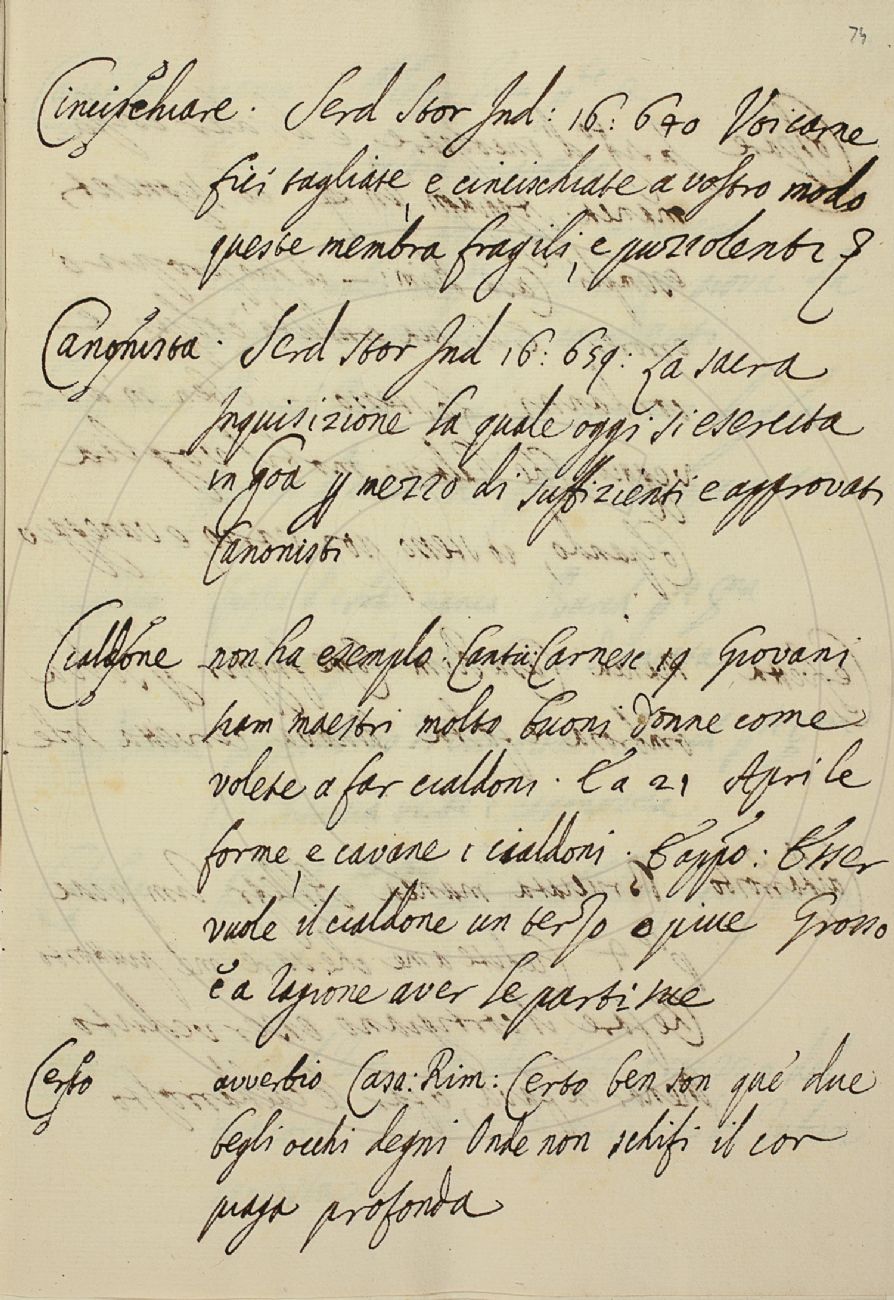 74
Cincischiare. Serd Stor Ind: 16: 640 Voi carne
fici tagliate, e cincischiate a vostro modo
queste membra fragili, e puzzolenti?
Canonista. Serd Stor Ind 16: 659: La sacra
Inquisizione la quale oggi si esercita
in Goa p mezzo di suffizienti e approvati
Canonisti
Cialdone non ha esempio. Canti: Carnesc 19 Giovani
siam maestri molto buoni donne come
volete a far cialdoni. E a 21 Aprile
forme, e cavane i cialdoni. E appo: Esser
vuole il cialdone un terzo o piue Grosso
e a ragione aver le parti sue
Certo avverbio Casa: Rim: Certo ben son que due
begli occhi degni Onde non schifi il cor
piaga profonda